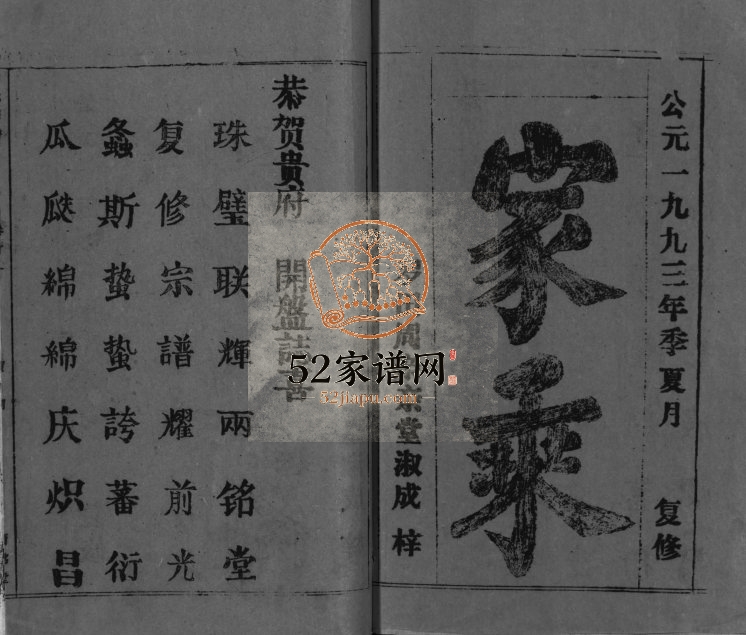 公元一九九三年季夏月 复修
家乘
周
堂淑成 梓
恭贺贵府 開盤誌
珠璧联輝兩铭堂
复修宗譜耀前光
螽斯蛰蛰誇蕃衍
瓜瓞綿綿庆炽昌
52家谱网
52jiapu.com